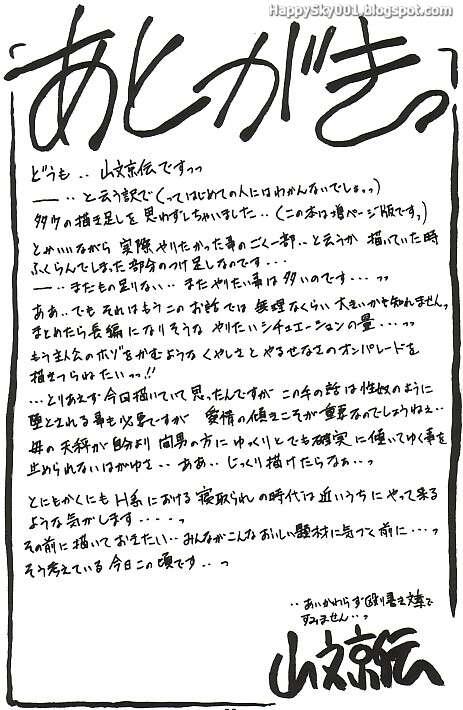 HappySky001.blogspot.com
あとがきっ
どうも‥山文京伝ですっっ
――‥と云う訳で(ってはじめての人にはわかんないでしょっっ)
多ウの描き足しを思わずしちゃいました‥(この本は増ページ版ですっ)
とかいいながら 実際やりたかった事のごく一部‥と云うか 描いていた時
ふくらんでしまった部分のつけ足しなのです・・・
――‥まだもの足りない‥まだやりたい事は多いのです・・・っっ
ああ‥でもそれはもうこのお話では無理なくらい大きいかも知れませんっ
まとめたら長編になりそうな やりたいシチュエーションの量・・・・っっ
もう主人公のホゾをかむような くやしさと やるせなさのオンパレードを
描きつらねたいっっ!!
・・・とりあえず今回描いていて思ったんですが この手の話は性奴のように
堕とされる事も必要ですが 愛情の傾きこそが重要なのでしょうねえ‥
母の天秤が自分より 間男の方に ゆっくりとでも確実に傾いてゆく事を
止められないはがゆさ‥ああ‥じっくり描けたらなぁ‥っ
とにもかくにも H系における寝取られの時代は近いうちにやって来る
ような気がします・・・・っ
その前に描いておきたい‥みんながこんなおいしい題材に気づく前に・・・っ
そう考えている今日この頃です‥っ
‥あいかわらず殴り書き文章で
すみません‥っ
山文京伝